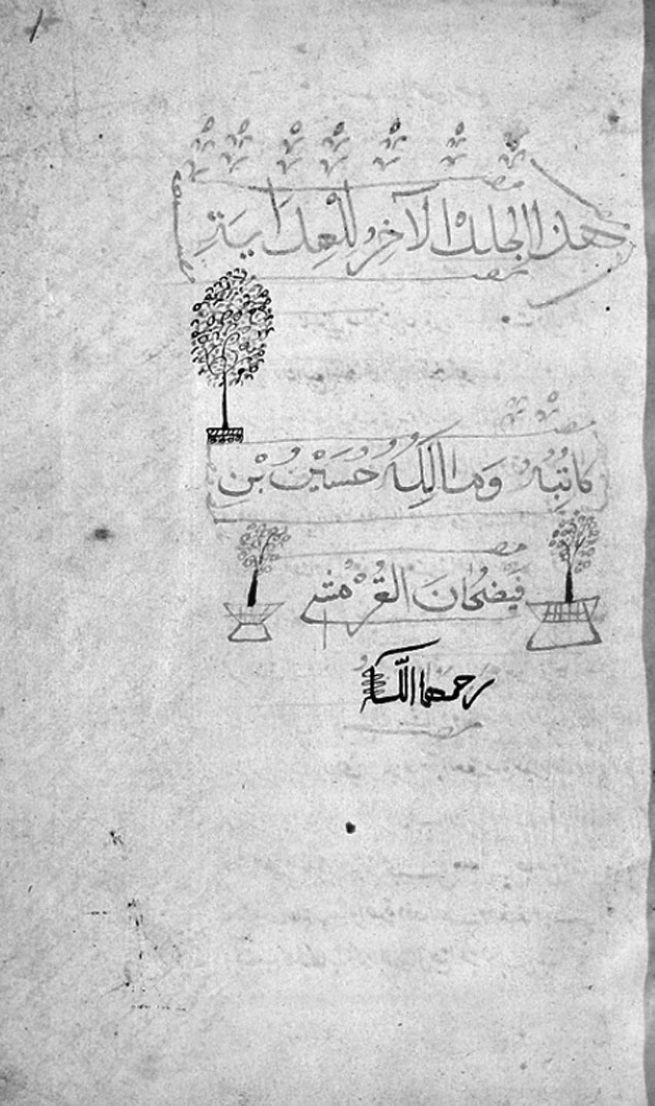 هذا الجلد الآخر للهداية
كاتبُهُ وَمالِكُهُ حُسَيْن بْنِ
فيضخَانَ القُرْمشي
رحمهما الله